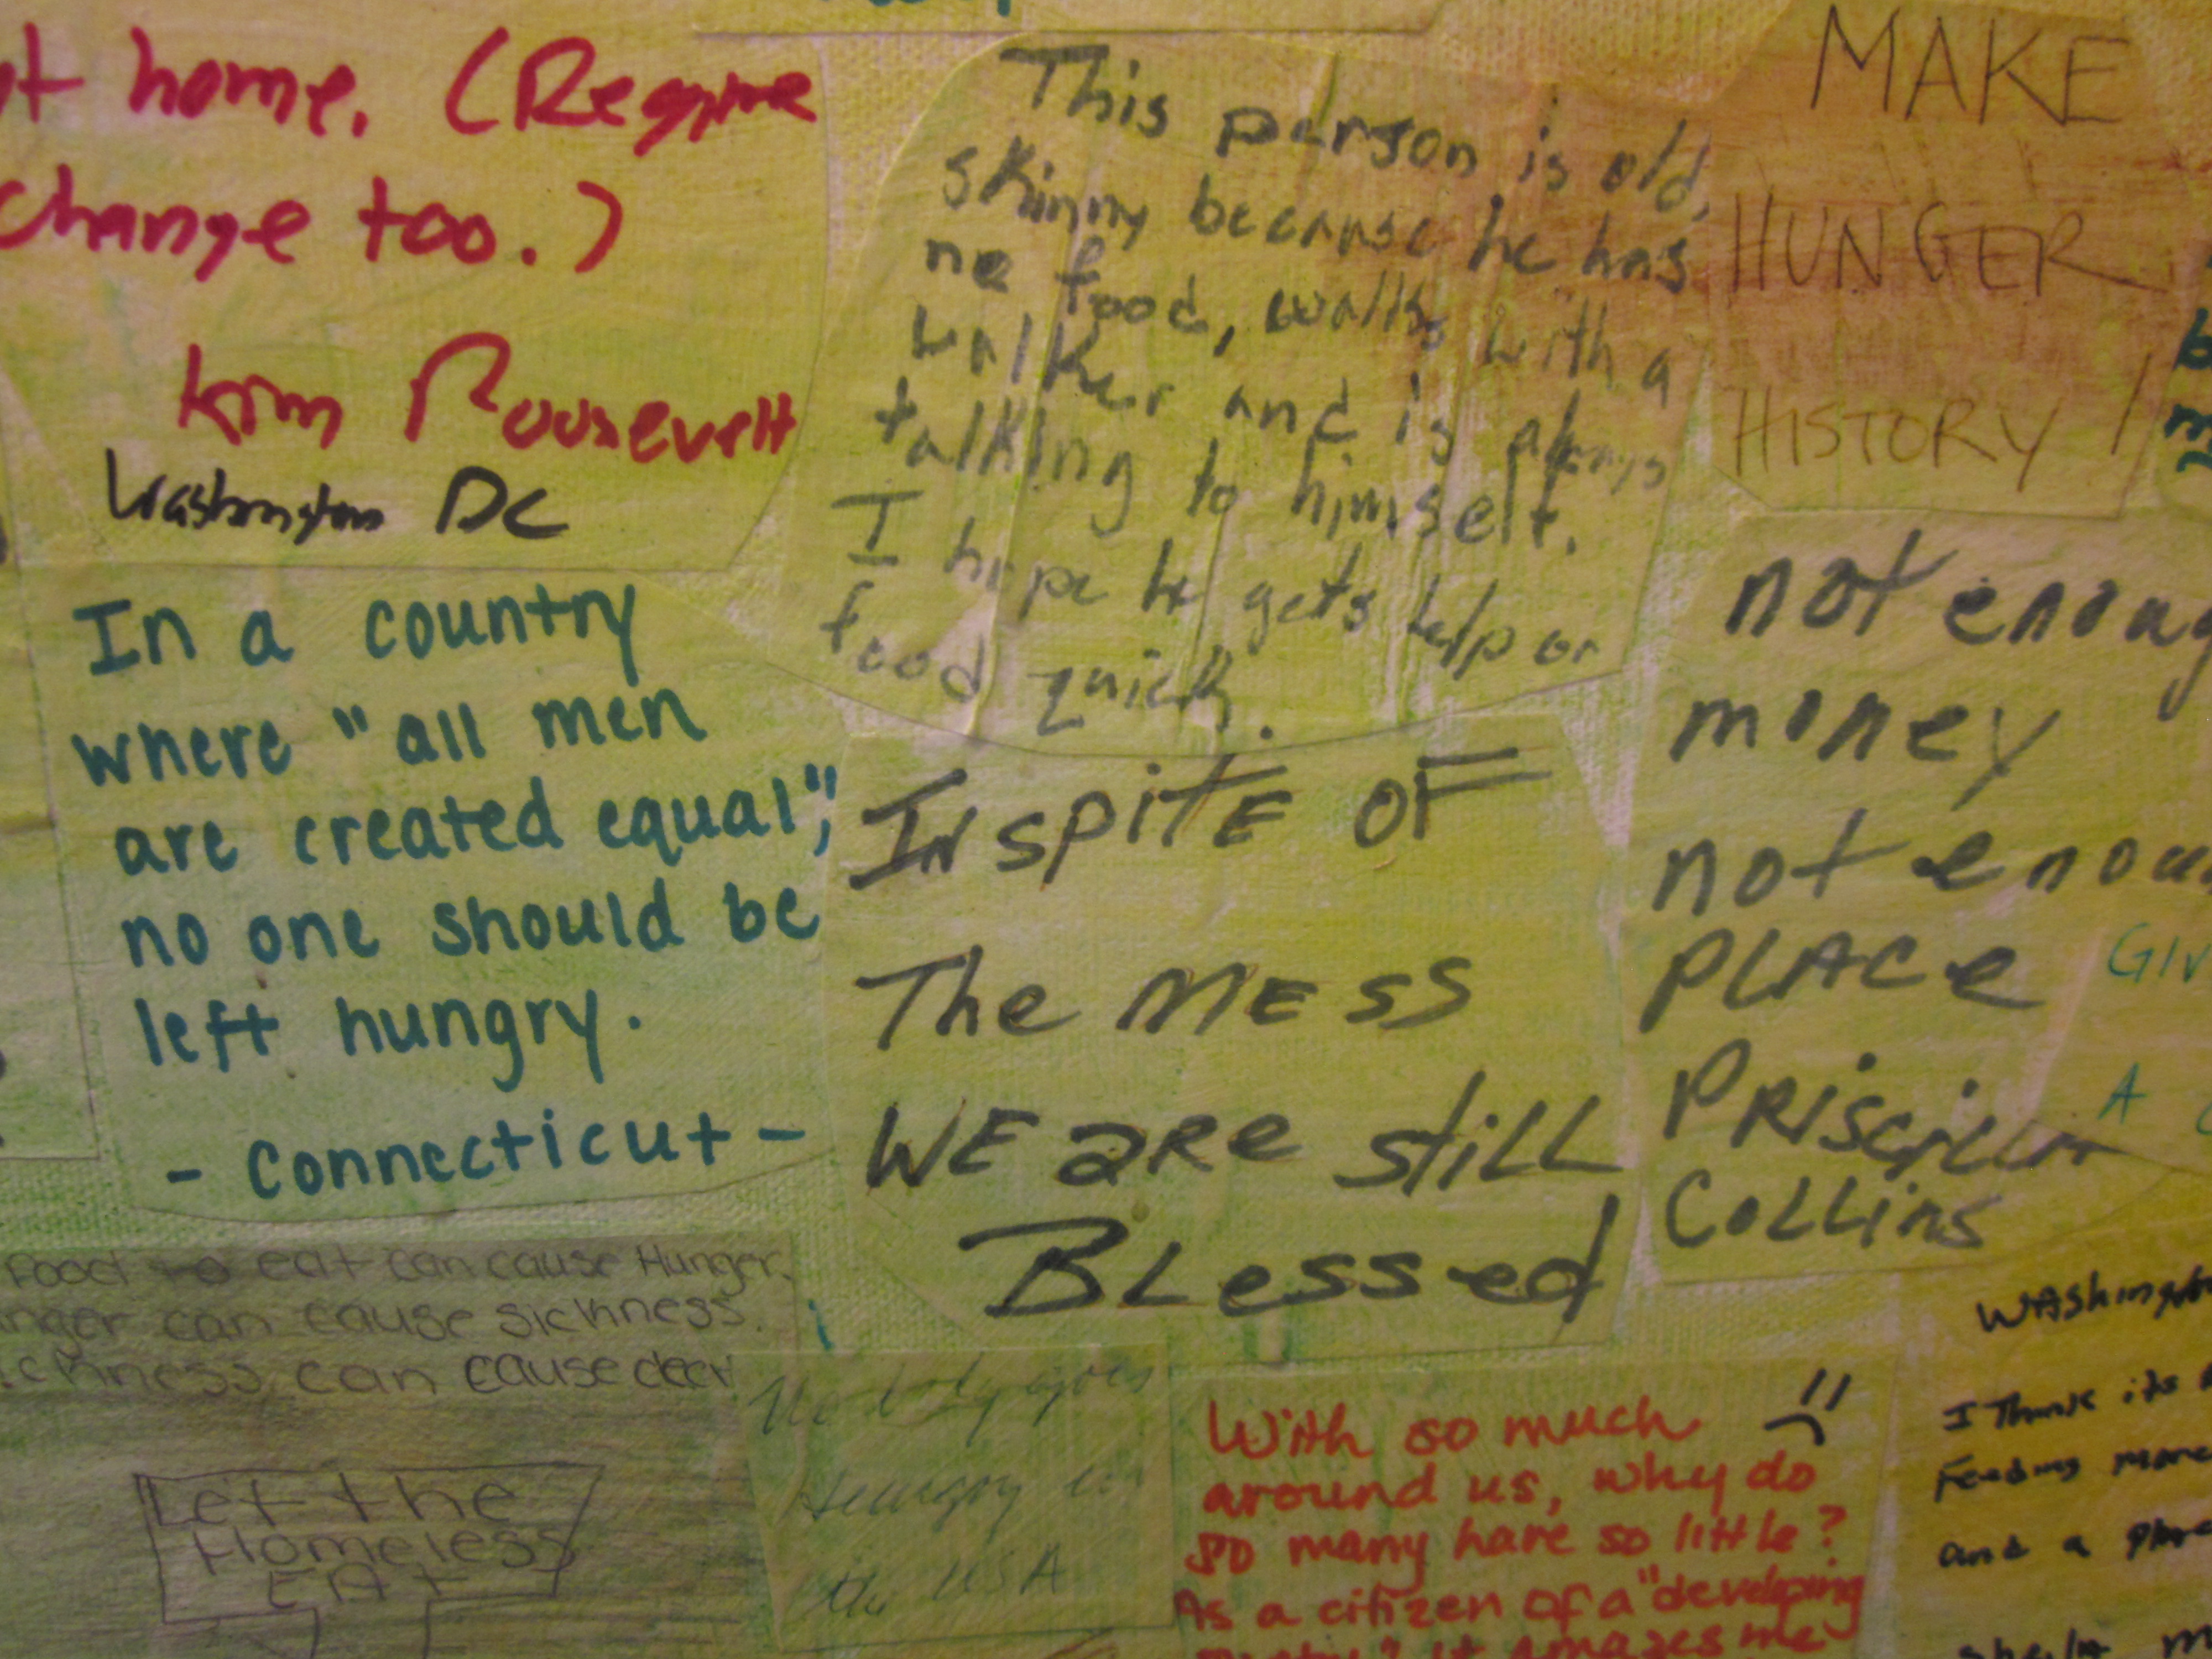 home. (Regime
change too.)
Kim Roosevelt
Washington DC
This person is old,
skinny because he has
no food, walks with a
walker and is always
talking to himself.
I hope he gets help or
food quick.
MAKE
HUNGER
HISTORY!
In a country
where "all men
are created equal",
no one should be
left hungry.
- Connecticut -
In spite of
The MESS
WE are still
Blessed
not
money
not
PLACE
Priscilla
Collins
A
food to eat can cause Hunger.
can cause sickness.
can cause
Let the
Homeless
EAt
Nobody goes
Hungry in
the USA
With so much
around us, why do
so many have so little?
As a citizen of a "developing
it amazes me
I Think its
Feeding more
and a